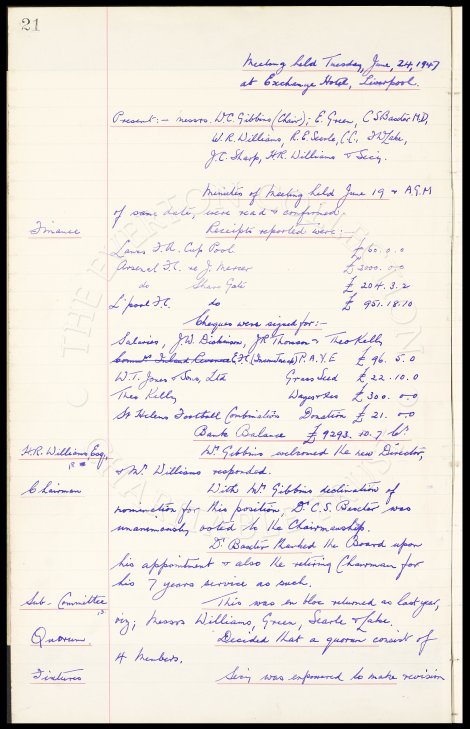 21
Meeting held Tuesday, June, 24, 1947
at Exchange Hotel, Liverpool.
Present:- Messrs. W.C. Gibbins (Chair); E. Green, C.S. Baxter M.D,
W.R. Williams, R.E. Searle, C.C. Lake,
J.C. Sharp, H.R. Williams & Secy.
Minutes of Meeting held June 19 & A.G.M
of same date, were read & confirmed.
Finance Receipts reported were:-
Lancs F.A. Cup Pool £ 60. 0. 0
Arsenal F.C. re J. Mercer £ 3000. 0. 0
do Share Gate £ 204. 3. 2
L'pool F.C. do £ 951. 18. 10
Cheques were signed for:-
Salaries, J.W. Dickinson, J.R. Thomson & Theo Kelly
Inland Revenue P.A.Y.E £ 96. 5. 0
W.T. Jones & Sons, Ltd Grass Seed £ 22. 10. 0
Theo Kelly Wages £ 300. 0. 0
St Helens Football Combination Donation £ 21. 0. 0
Bank Balance £ 9293. 10. 7
H.R. Williams, Esq. Mr Gibbins welcomed the new Director,
& Mr. Williams responded.
Chairman With Mr Gibbins declination of
nomination for this position, Dr. C.S. Baxter was
unanimously voted to the Chairmanship.
Dr Baxter thanked the Board upon
his appointment & also the retiring Chairman for
his 7 years service as such.
Sub-Committee This was en bloc returned as last year,
viz; Messrs Williams, Green, Searle & Lake.
Quorum Decided that a quorum consist of
4 Members.
Fixtures Secy was empowered to make revision